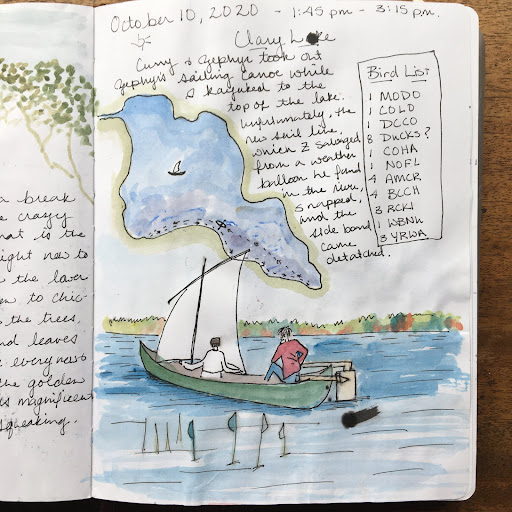 a break
crazy
hat is the
ight now to
the laver
en to chic-
the trees,
nd leaves
every now &
the golden
s magnificent
squeaking.
October 10, 2020 - 1:45 pm - 3:15 p.m.
Clary Lake
Curry & Zephyr took out
Zephyr's sailing canoe while
I kayaked to the
top of the lake.
Unfortunately, the
new sail line,
which Z salvaged
from a weather
balloon he found
in the river,
snapped,
and the
side board
came
detatched.
Bird List
1 MODO
1 COLO
1 DCCO
8 DUCKS?
1 COHA
1 NOFL
4 AMCR
4 BCCH
3 RCKI
1 WBNU
3 YRWA